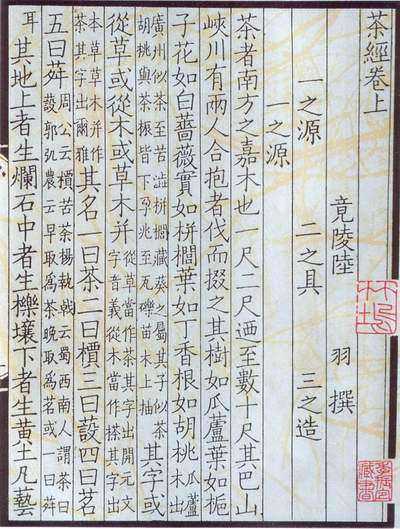 茶經卷上
竟陵陸 羽 撰
一之源 二之具 三之造
一之源
茶者南方之嘉木也一尺二尺迺至數十尺其巴山
峽川有兩人合抱者伐而掇之其樹如瓜蘆葉如梔
子花如白薔薇實如栟櫚葉如丁香根如胡桃瓜蘆木出
廣州似茶至苦澁栟櫚藏葵之屬其子似茶胡桃與茶根皆下孕兆至瓦礫苗木上抽其字或
從草或從木或草木并從草當作茶其字出開元文字音義從木當作搽其字出
本草草木并作茶其字出爾雅其名一曰茶二曰檟三曰蔎四曰茗
五曰荈周公云檟苦茶揚執戟云蜀西南人謂茶曰蔎郭弘農云早取爲茶晚取爲茗或一曰荈
耳其地上者生爛石中者生櫟壤下者生黄土凡藝